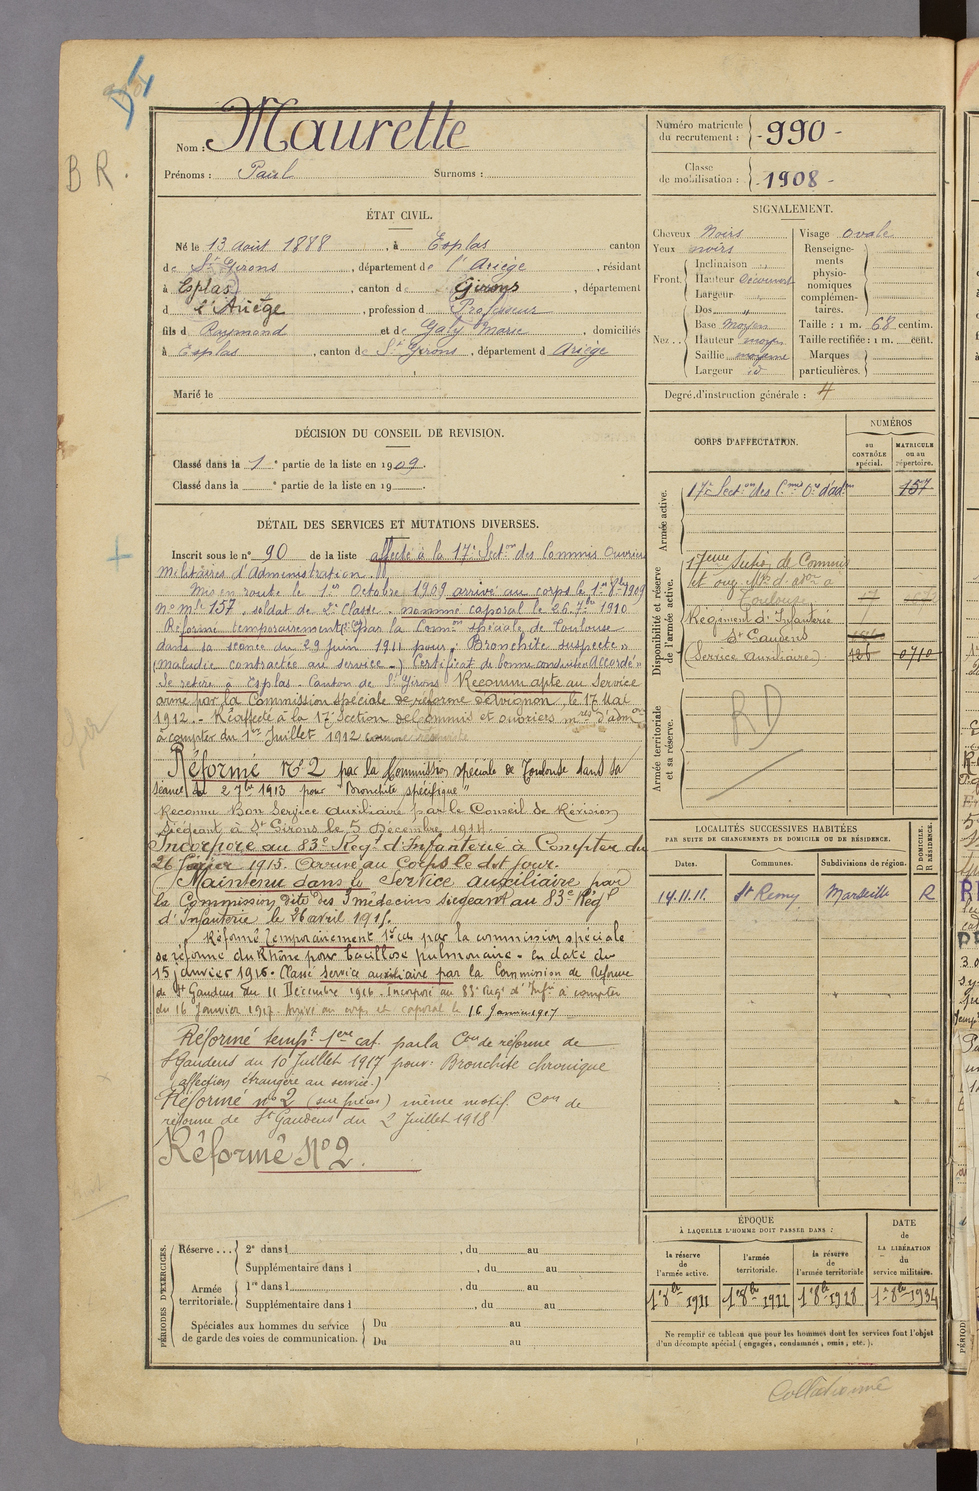 B R.
Nom : Maurette
Prénoms : Paul Surnoms :
ÉTAT CIVIL.
Né le 13 août 1888, à Esplas canton
de St Girons, département de l'Ariège, résidant
à Esplas, canton de St Girons, département
d l'Ariège, profession d Professeur
fils d Raymond et de Galy Marie, domiciliés
à Esplas, canton de St Girons, département d Ariège
Marié le
DÉCISION DU CONSEIL DE REVISION.
Classé dans la 1e partie de la liste en 1909.
Classé dans la e partie de la liste en 19
DÉTAIL DES SERVICES ET MUTATIONS DIVERSES.
Inscrit sous le n° 90 de la liste affecté à la 17e Secton des Commis Ouvriers
Militaires d'Administration.
Mis en route le 1er Octobre 1909 arrivé au corps le 1er 8bre 1909
No mle 157, soldat de 2e Classe. nommé caporal le 26 7bre 1910
Réformé temporairement par la Comon spéciale de Toulouse
dans sa séance du 29 juin 1911 pour "Bronchite suspecte"
(maladie contractée au service -) Certificat de bonne conduite "Accordé"
Se retire à Esplas. Canton de St Girons. Reconnu apte au Service
armé par la Commission spéciale de réforme d'Avignon le 17 Mai
1912. - Réaffecté à la 17e Section de Commis et ouvriers mres d'admon
à compter du 1er Juillet 1912
Réformé No 2 par la Commission spéciale de Toulouse dans sa
séance du 2 7bre 1913 pour "Bronchite spécifique"
Reconnu Bon Service auxiliaire par le Conseil de Révision
Siégeant à St Girons le 5 Décembre 1914.
Incorporé au 83e Régt d'Infanterie à Compter du
26 Février 1915. Arrivé au Corps le dit jour.
Maintenu dans le Service auxiliaire par
la Commission dite des 3 médecins siégeant au 83e Régt
d'Infanterie le 26 avril 1915.
Réformé Temporairement 1e cat par la commission spéciale
de réforme du Rhône pour bacillose pulmonaire. En date du
15 janvier 1916. Classé service auxiliaire par la Commission de Réforme
de St Gaudens du 11 Décembre 1916. Incorporé au 83e Régt d'Infie à compter
du 16 Janvier 1917. Arrivé au corps et caporal le 16 Janvier 1917
Réformé tempt 1ere cat. par la Con de réforme de
St Gaudens du 10 Juillet 1917 pour: Bronchite chronique
(affection étrangère au service.)
Réformé no 2 (sur pièces) même motif. Con de
réforme de St Gaudens du 2 Juillet 1918
Réformé No 2.
PÉRIODES D'EXERCICES.
Réserve . . . 2e dans l , du au
Supplémentaire dans l , du au
Armée territoriale. 1re dans l , du au
Supplémentaire dans l , du au
Spéciales aux hommes du service de garde des voies de communication. Du au
Du au
Numéro matricule du recrutement : - 990 -
Classe de mobilisation : - 1908 -
SIGNALEMENT.
Cheveux Noirs
Yeux noirs
Front. Inclinaison "
Hauteur Découvert
Largeur
Nez . . Dos "
Base Moyen
Hauteur moyen
Saillie moyenne
Largeur id
Visage Ovale
Renseignements physionomiques complémentaires.
Taille : 1 m. 68 centim.
Taille rectifiée : 1 m. cent.
Marques particulières.
Degré d'instruction générale : 4
CORPS D'AFFECTATION.
NUMÉROS
au CONTRÔLE spécial.
MATRICULE ou au répertoire.
Armée active.
17e Secton des Cmis Ors d'adon 157
Disponibilité et réserve de l'armée active.
17eme Section de Commis
et ouv. Mres d'adon à
Toulouse
Régiment d'Infanterie
St Gaudens
(Service Auxiliaire) 126 0710
Armée territoriale et sa réserve.
RD
LOCALITÉS SUCCESSIVES HABITÉES
PAR SUITE DE CHANGEMENTS DE DOMICILE OU DE RÉSIDENCE.
Dates. Communes. Subdivisions de région. D DOMICILE. R RÉSIDENCE.
14.11.11. St Remy Marseille R
ÉPOQUE
À LAQUELLE L'HOMME DOIT PASSER DANS :
la réserve de l'armée active.
l'armée territoriale.
la réserve de l'armée territoriale
DATE de LA LIBÉRATION du service militaire.
1er 8bre 1911 1er 8bre 1922 1er 8bre 1928 1er 8bre 1934
Ne remplir ce tableau que pour les hommes dont les services font l'objet
d'un décompte spécial (engagés, condamnés, omis, etc.).
Collationné